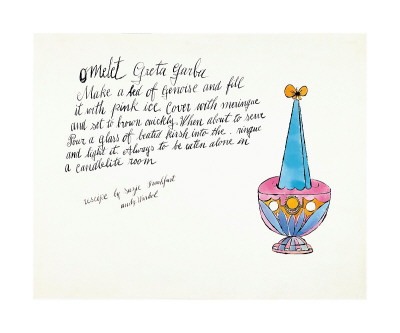 omelet Greta Garba
Make a bed of Genoise and fill
it with pink ice. Cover with meringue
and set to brown quickly. When about to serve
Pour a glass of heated kirsh into the . ringue
and light it. Always to be eaten alone in
a candlelite room
rescipe by Suzie Frankfurt
andy Warhol